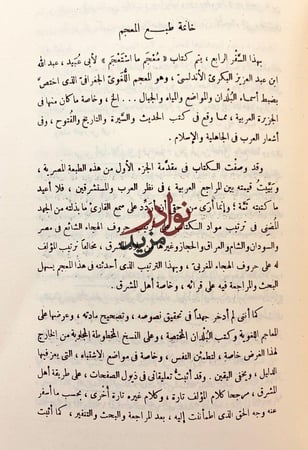 خاتمة طبع المعجم
بهذا السِّفر الرابع ، يتم كتاب « مُعْجَم ما اسْتَعْجَم » لأبى عُبَيد، عبد الله
ابن عبد العزيز البكرىّ الأندلسىّ ، وهو المعجم اللغوىّ الجغرافىّ الذى اختصّ
بضبط أسماء البُلدان والمواضع والمياه والجبال ... الخ ، وخاصة ما كان منها فى
الجزيرة العربية ، مما وقع فى كتب الحديث والسِّيرة والتاريخ والفتوح ، وفى
أشعار العرب فى الجاهلية والإسلام .
وقد وصفْت الكتاب فى مقدّمة الجزء الأول من هذه الطبعة المصرية ،
وبَيَّنْتُ قيمته بين المراجع العربية ، فى نظر العرب والمستشرقين ، فلا أعيد
ما كتبته ثَمَّة ؛ وإنما أرى من سمع القارئ ما بذلت من الجهد
المُضنى فى ترتيب مواد الكتاب حروف الهجاء الشائع فى مصر
والسودان والشام والعراق والحجاز وغير المشرق ، مخالفاً ترتيب المؤلف
له على حروف الهجاء المغربىّ ، وبهذا الترتيب الذى أحدثته فى هذا المعجم يسهل
البحث والمراجعة فيه على قرائه ، وخاصة أهل المشرق .
كما أننى لم أدخر جهداً فى تحقيق نصوصه ، وتصحيح مادته ، وعرضها على
المعاجم اللغوية وكتب البُلدان المختصّة ، وعلى النسخ المخطوطة المجلوبة من الخارج
لهذا الغرض خاصة ، لتطمئنّ النفس ، وخاصة فى مواضع الاشتباه ، التى يعزّ فيها
الدليل ، ويخفى اليقين . وقد أثبتُّ تعليقاتى فى ذيول الصفحات ، على طريقة أهل
المشرق ، مرجحا كلام المؤلف تارة ، وكلام غيره تارة أخرى، بحسب ما أسفر
عنه وجه الحق الذى اطمأننت إليه ، بعد المراجعة والبحث والتنقير ، كما أثبت
نوادر
مزيد